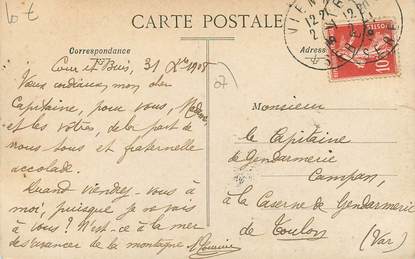 CARTE POSTALE
Correspondance
Adresse
Cour et Buis, 31 Xbre 1908
Vœux cordiaux, mon cher
Capitaine, pour vous, Madame
et les vôtres, de la part de
nous tous et fraternelle
accolade.
Quand viendrez-vous à
moi, puisque je vais
à vous? N'est-ce à la mer
de s'avancer de la montagne
Monsieur
le Capitaine
de Gendarmerie
Campan,
à la Caserne de Gendarmerie
de Toulon
(Var)
VIENNE
ISERE
POSTES
10